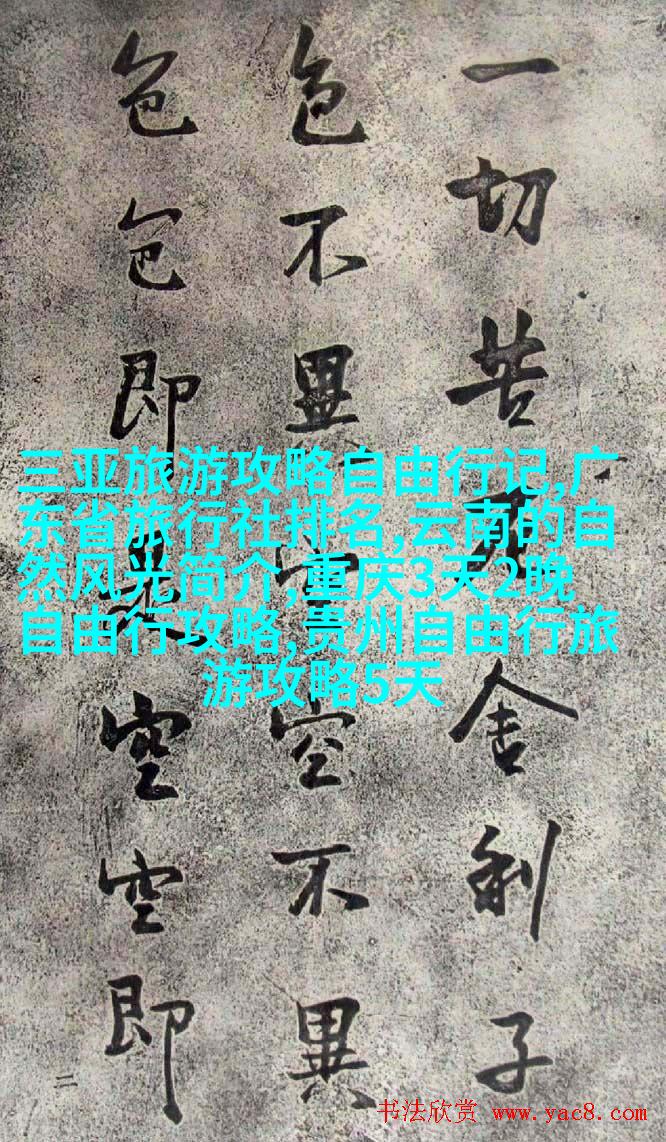 一切苦厄舍利子
色不異空空不異
色色即是空空即
二
三亚旅游攻略自由行记,广
东省旅行社排名,云南的自
然风光简介,重庆3天2晚
自由行攻略,贵州自由行旅
游攻略5天
书法欣赏 www.yac8.com